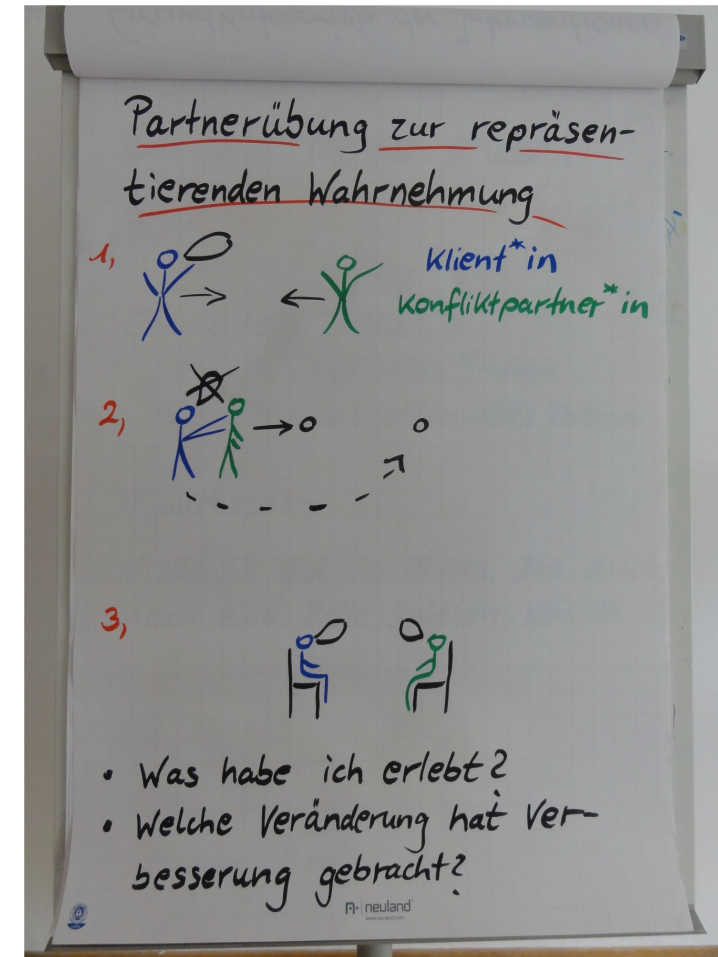 Partnerübung zur repräsen-
tierenden Wahrnehmung
1,
Klient*in
Konfliktpartner*in
2,
3,
• Was habe ich erlebt?
• Welche Veränderung hat Ver-
besserung gebracht?
neuland